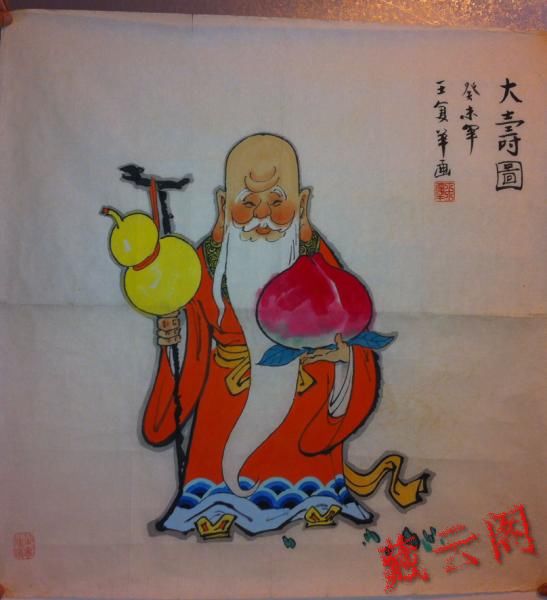 大壽圖
癸未年
王复華画
藏云阁